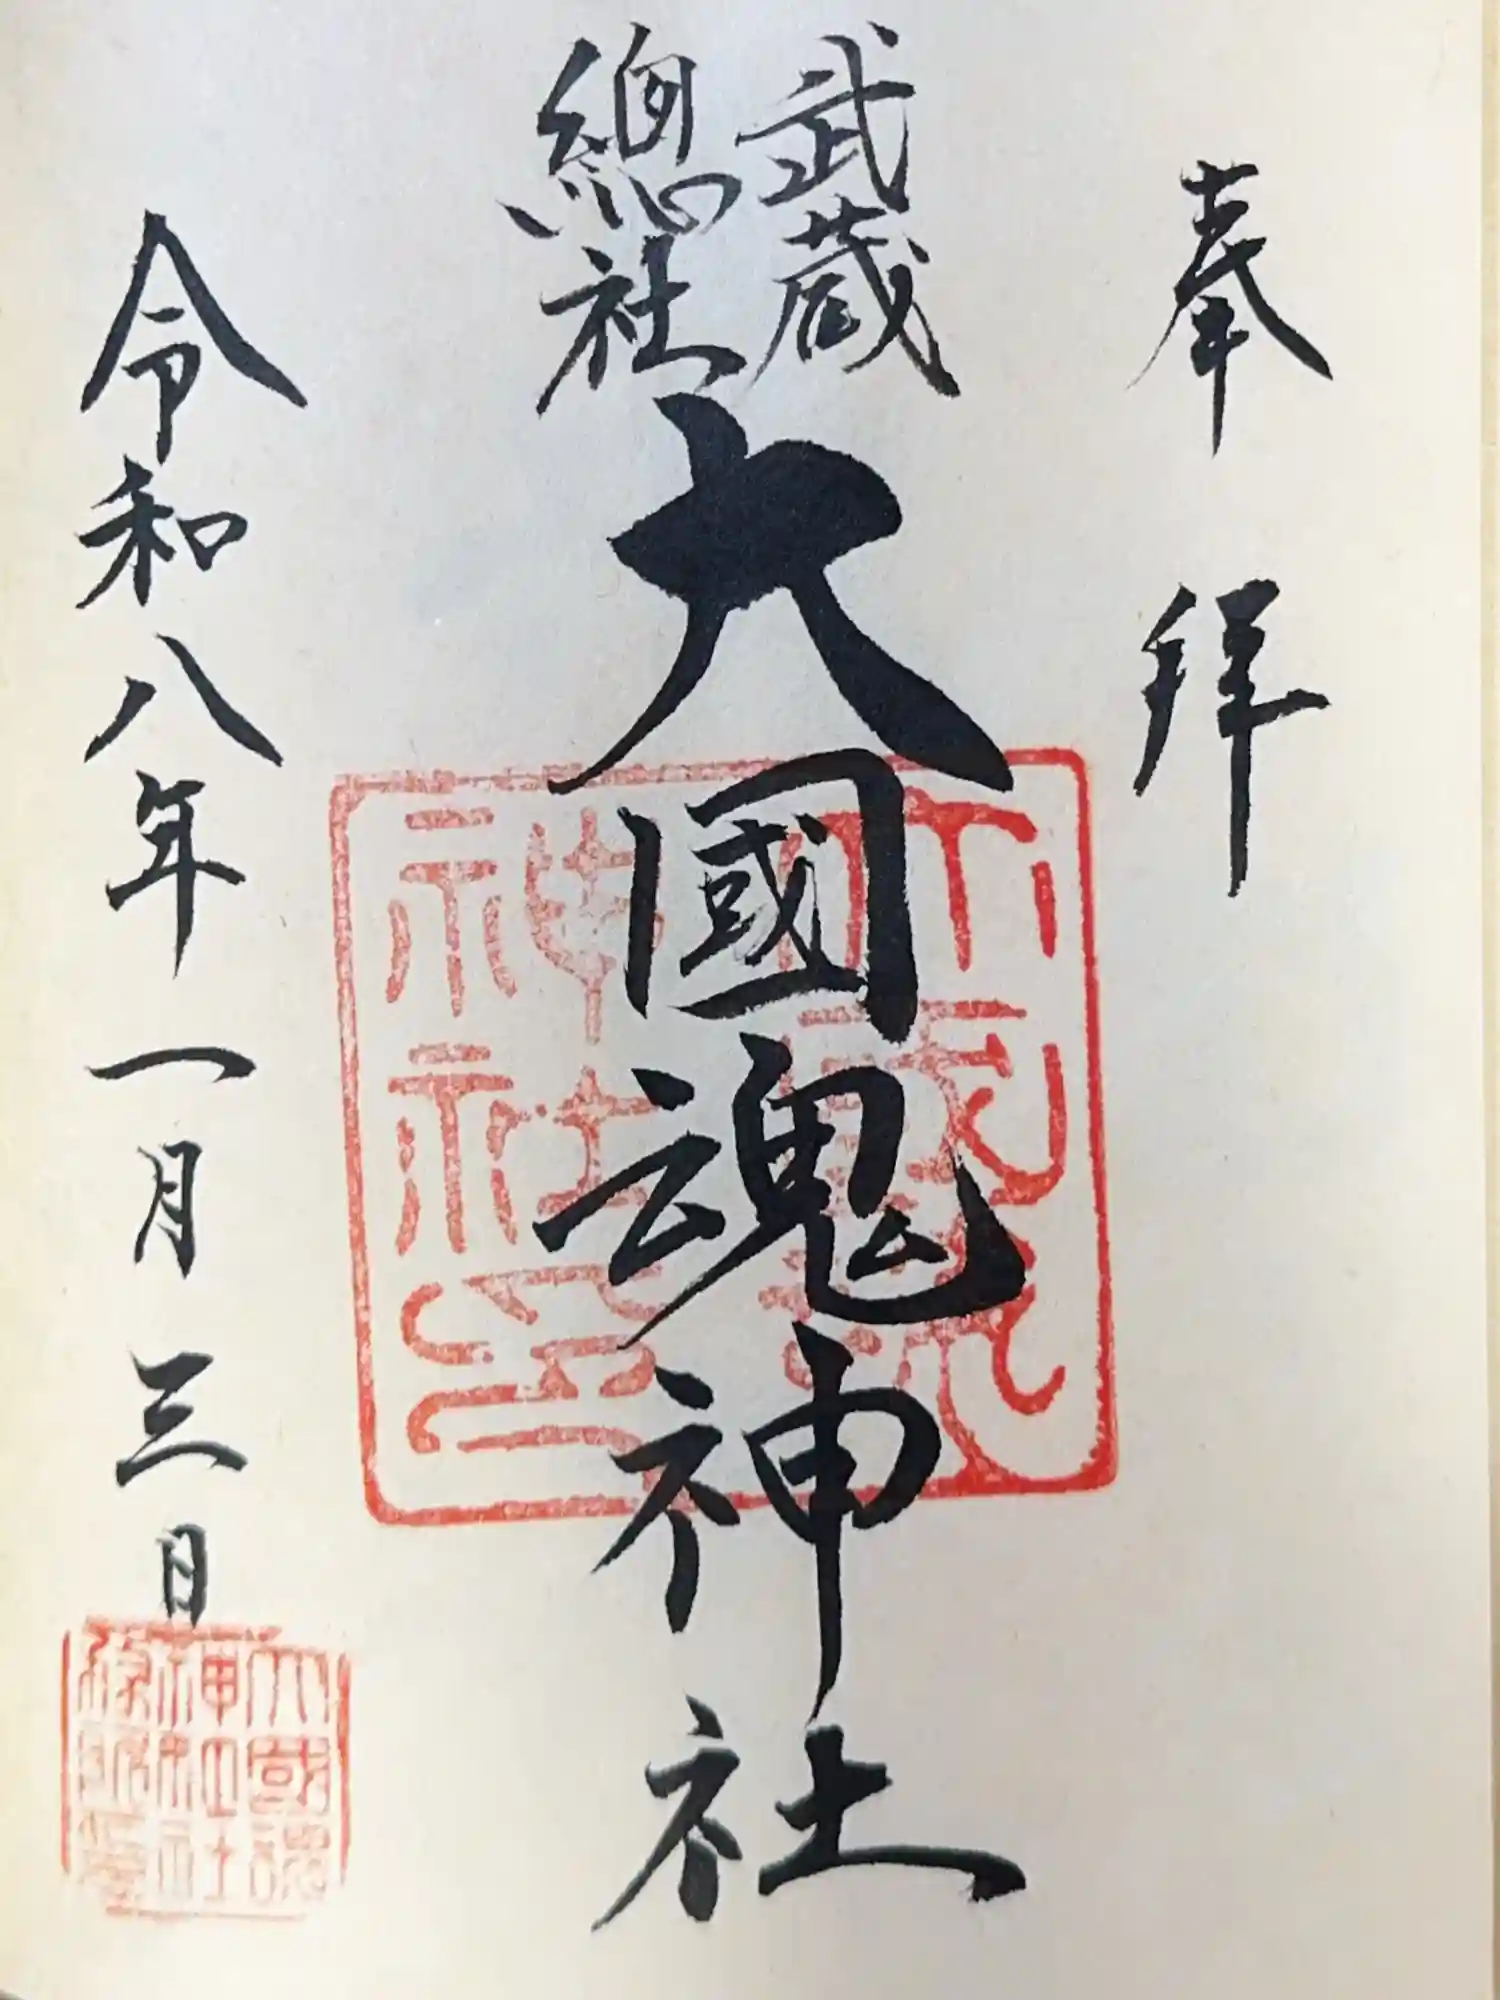 奉拝
武蔵
總社
大國魂神社
令和八年一月三日
大國魂
神社印
大國魂
神社